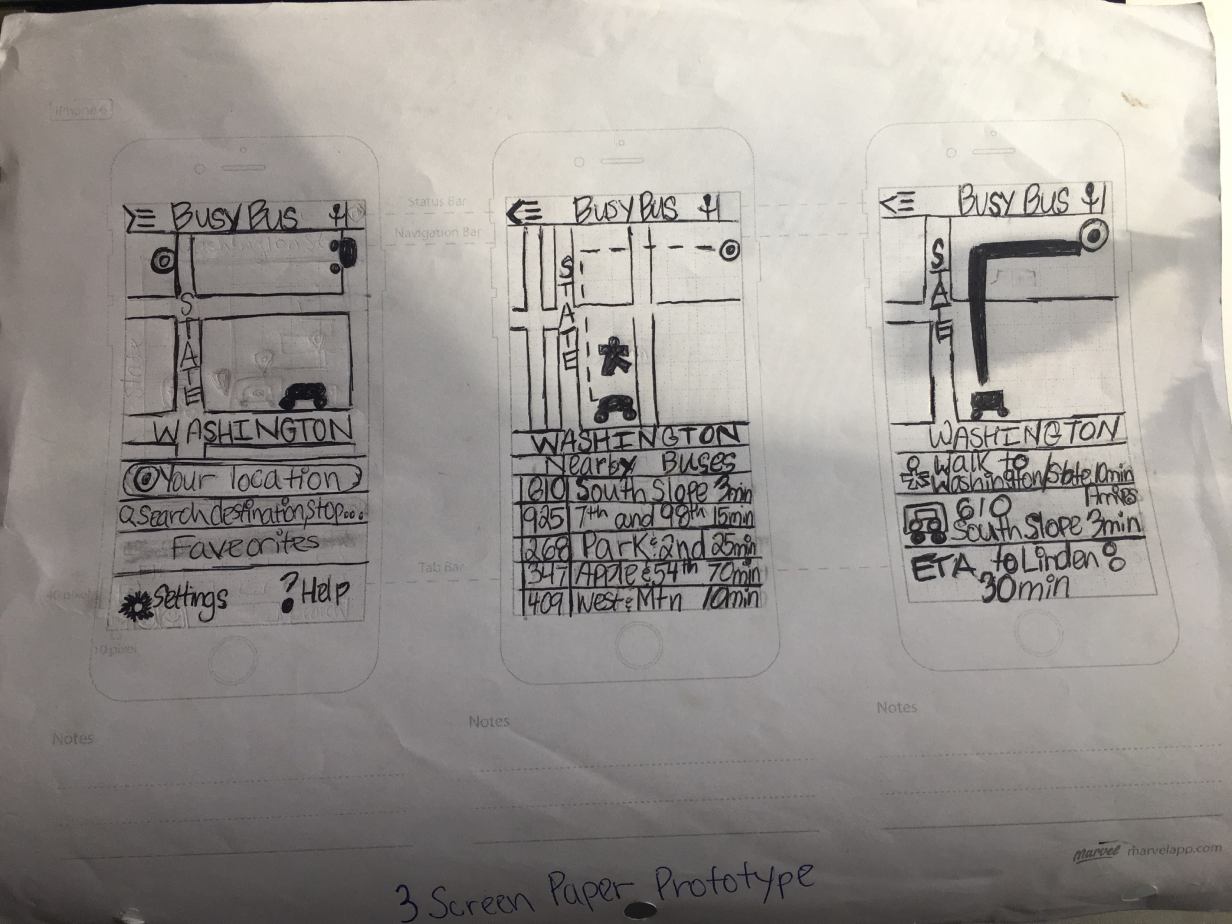 iPhone 6
BUSY BUS
STATE
WASHINGTON
Your location
Search destination, stop...
Faveorites
Settings ? Help
Status Bar
Navigation Bar
Tab Bar
40 pixel
10 pixel
Notes
BUSY BUS
STATE
WASHINGTON
Nearby Buses
610 South Slope 3min
925 7th and 98th 15min
268 Park & 2nd 25min
347 Apple & 54th 70min
409 West & Mtn 10min
Notes
BUSY BUS
STATE
WASHINGTON
Walk to
Washington/State 10min
610
South Slope 3min
ETA to Linden
30min
Notes
marvel marvelapp.com
3 Screen Paper Prototype